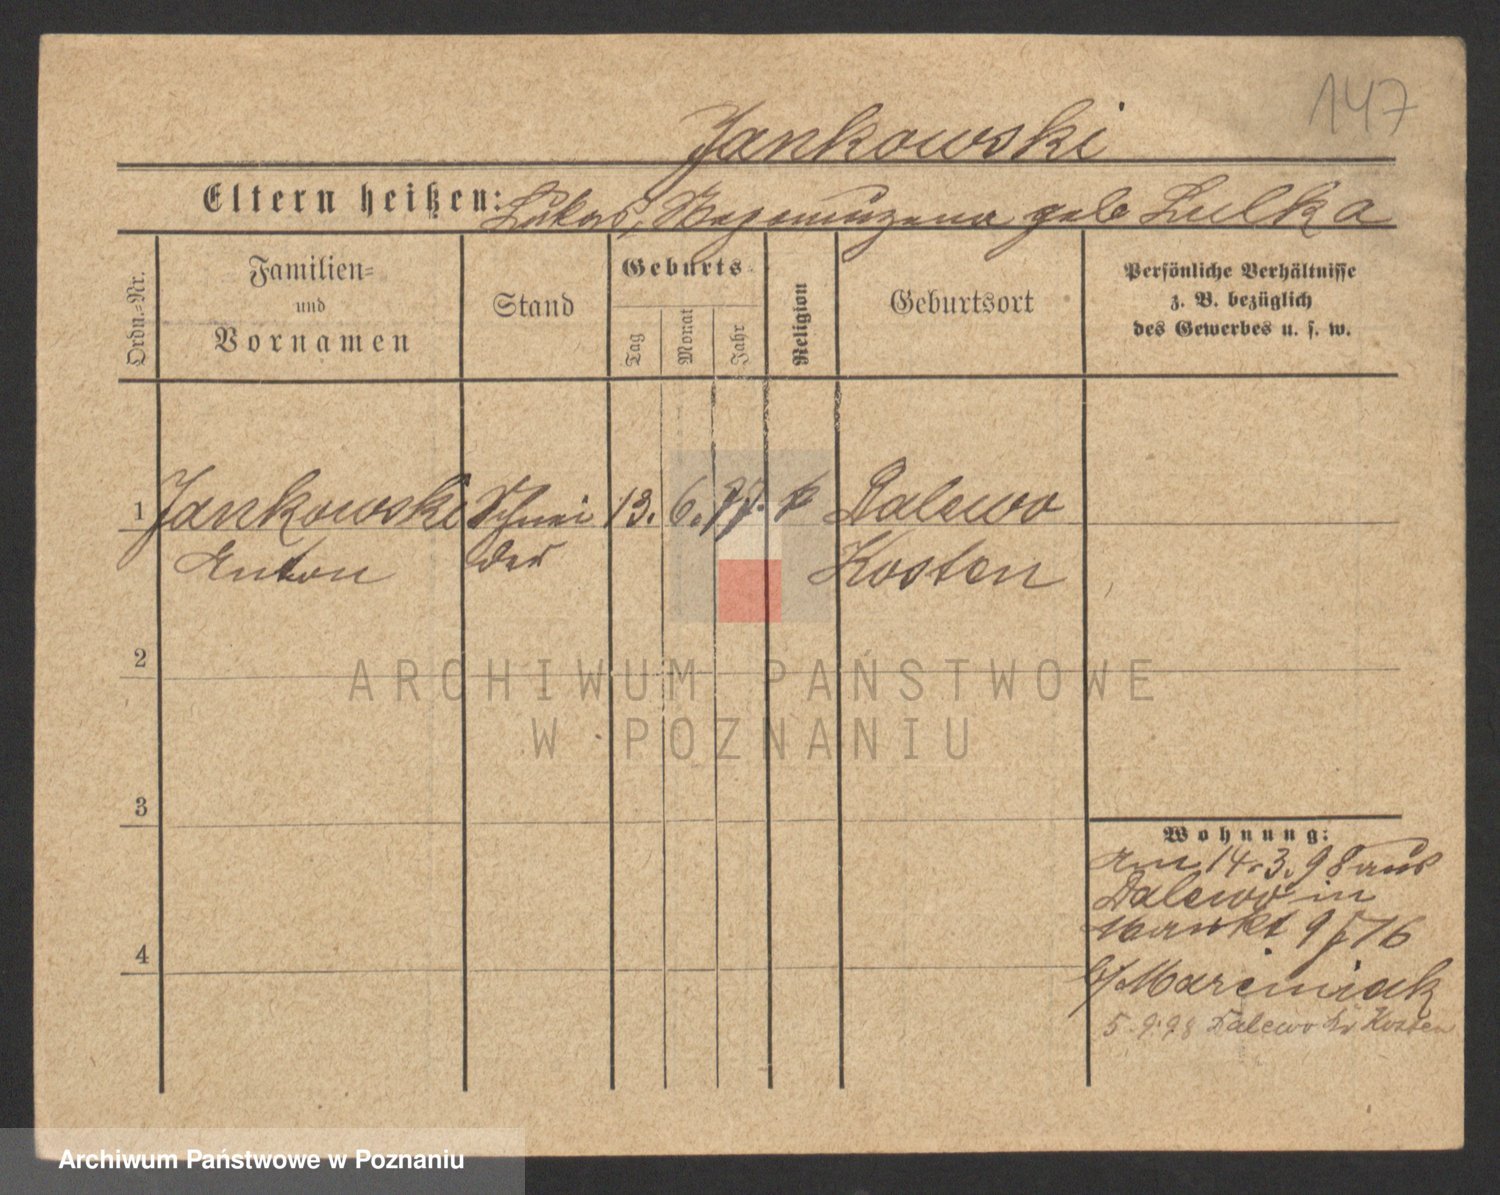 147
Jankowski
Eltern heißen: Lukas, geb Lulka
Ordn.-Nr.
Familien=
und
Vornamen
Stand
Geburts
Tag
Monat
Jahr
Religion
Geburtsort
Persönliche Verhältnisse
z. B. bezüglich
des Gewerbes u. s. w.
1 Jankowski Schnei 13. 6. 77. k Dalewo
Anton der Kosten
2
ARCHIWUM PAŃSTWOWE
W POZNANIU
3
Wohnung:
am 14.3.98 aus
Dalewo in
Markt 9 76
b/Marciniak
4
5.9.98 Dalewo Kr Kosten
Archiwum Państwowe w Poznaniu